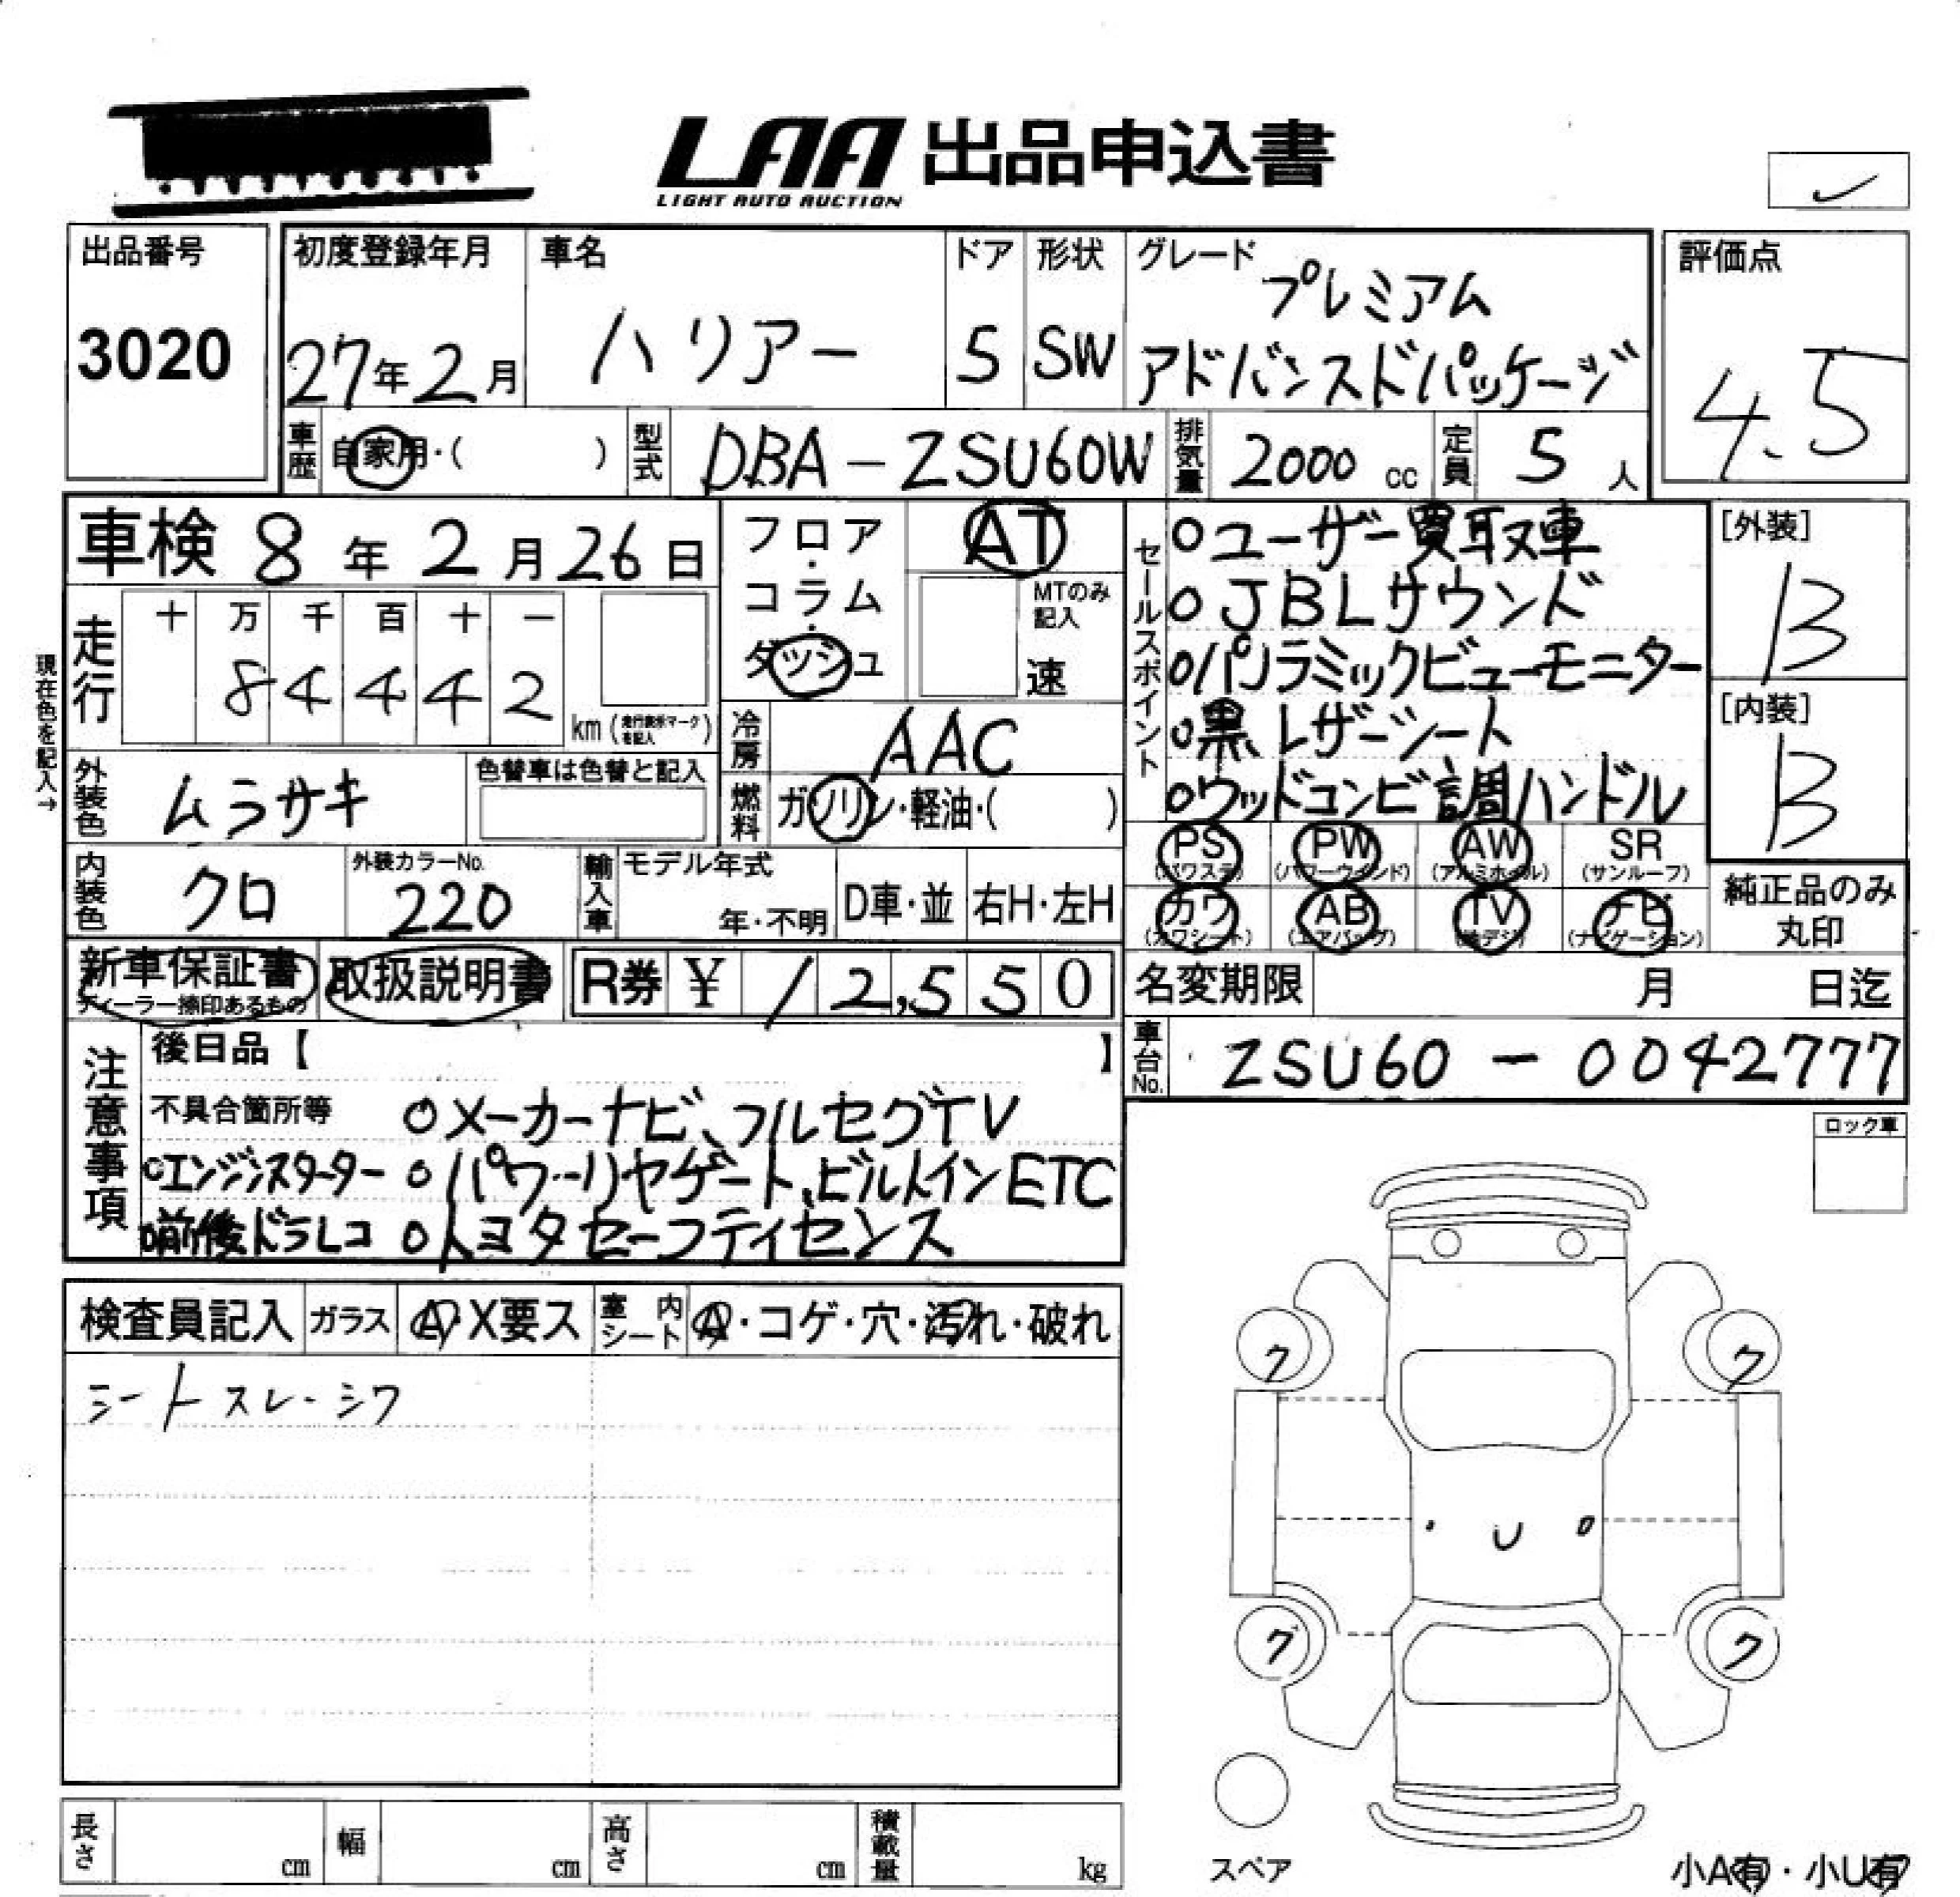 LAA 出品申込書
LIGHT AUTO AUCTION
出品番号
3020
初度登録年月
27年2月
車名
ハリアー
ドア
5
形状
SW
グレード
プレミアム
アドバンスドパッケージ
評価点
4.5
車歴
自家用・( )
型式
DBA-ZSU60W
排気量
2000cc
定員
5人
車検 8年2月26日
フロア・コラム・ダッシュ
AT
MTのみ記入
速
セールスポイント
○ユーザー買取車
○JBLサウンド
○パノラミックビューモニター
○黒レザーシート
○ウッドコンビ調ハンドル
[外装]
B
[内装]
B
現在色を記入→
走行
十 万 千 百 十 一
8 4 4 4 2
km (走行表示マークを記入)
冷房
AAC
外装色
ムラサキ
色替車は色替と記入
燃料
ガソリン・軽油・( )
内装色
クロ
外装カラーNo.
220
輸入車
モデル年式
年・不明
D車・並
右H・左H
PS (パワステ)
PW (パワーウインド)
AW (アルミホイル)
SR (サンルーフ)
カワ (カワシート)
AB (エアバッグ)
TV (地デジ)
ナビ (ナビゲーション)
純正品のみ
丸印
新車保証書
ディーラー捺印あるもの
取扱説明書
R券 ¥ 12,550
名変期限 月 日迄
車台No.
ZSU60-0042777
注意事項
後日品【 】
不具合箇所等 ○メーカーナビ、フルセグTV
○エンジンスターター ○パワーリヤゲート、ビルトインETC
○前後ドラレコ ○トヨタセーフティセンス
ロック車
検査員記入
ガラス
A・X要ス
室内シート
・コゲ・穴・汚れ・破れ
シートスレ・シワ
ク ク
U
ク ク
スペア
長さ cm
幅 cm
高さ cm
積載量 kg
小A有・小U有